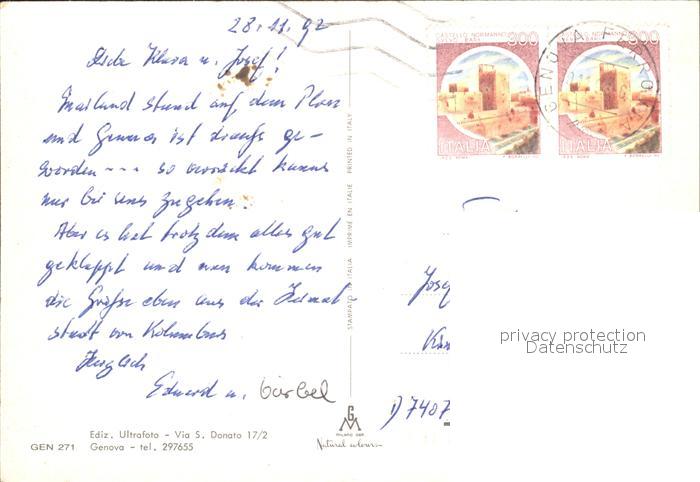 28.11.92
Liebe Klara u. Josef!
Mailand stand auf dem Plan
und Genua ist draus ge-
worden --- so verrückt kanns
nur bei uns zugehen.
Aber es hat trotzdem alles gut
geklappt und nun kommen
die Grüße eben aus der Heimat
stadt von Kolumbus.
Herzlich
Eduard u. Bärbel
GEN 271
Ediz. Ultrafoto - Via S. Donato 17/2
Genova - tel. 297655
STAMPATO IN ITALIA IMPRIMÉ EN ITALIE PRINTED IN ITALY
G M
MILANO
Natural colours
CASTELLO NORMANNO
SVEVO BARI
300
ITALIA
CASTELLO NORMANNO
300
ITALIA
GENOVA
Jose
D 7407
privacy protection
Datenschutz